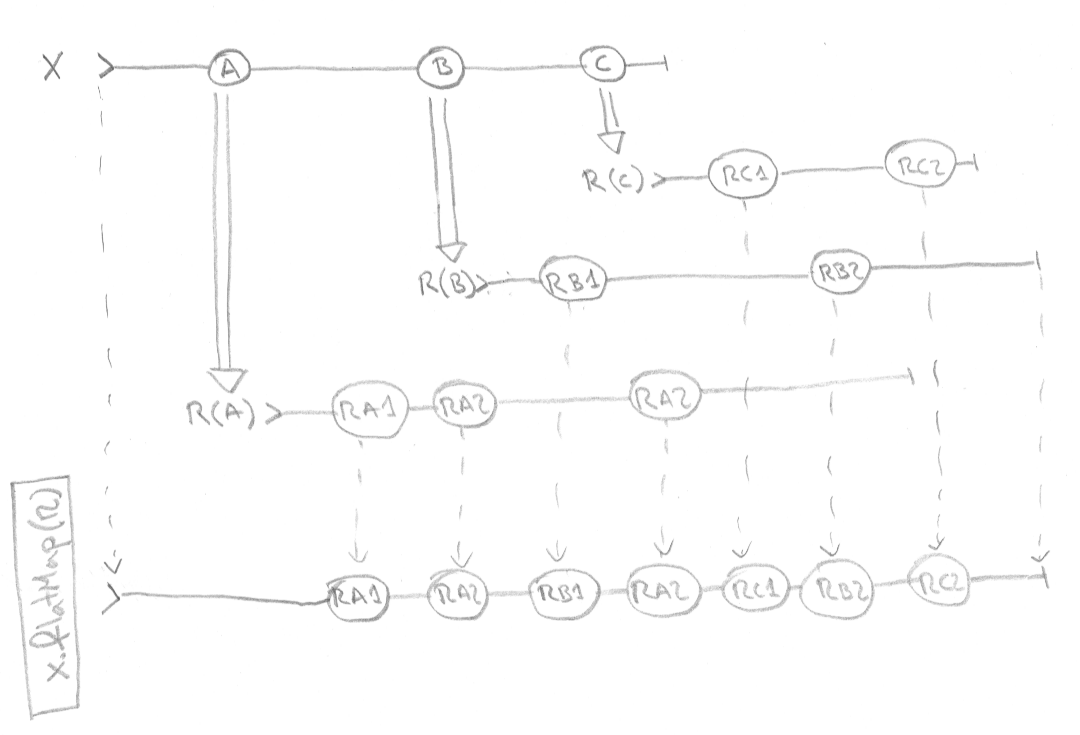 X A B C
R(C) RC1 RC2
R(B) RB1 RB2
R(A) RA1 RA2 RA2
x.flatMap(R)
RA1 RA2 RB1 RA2 RC1 RB2 RC2